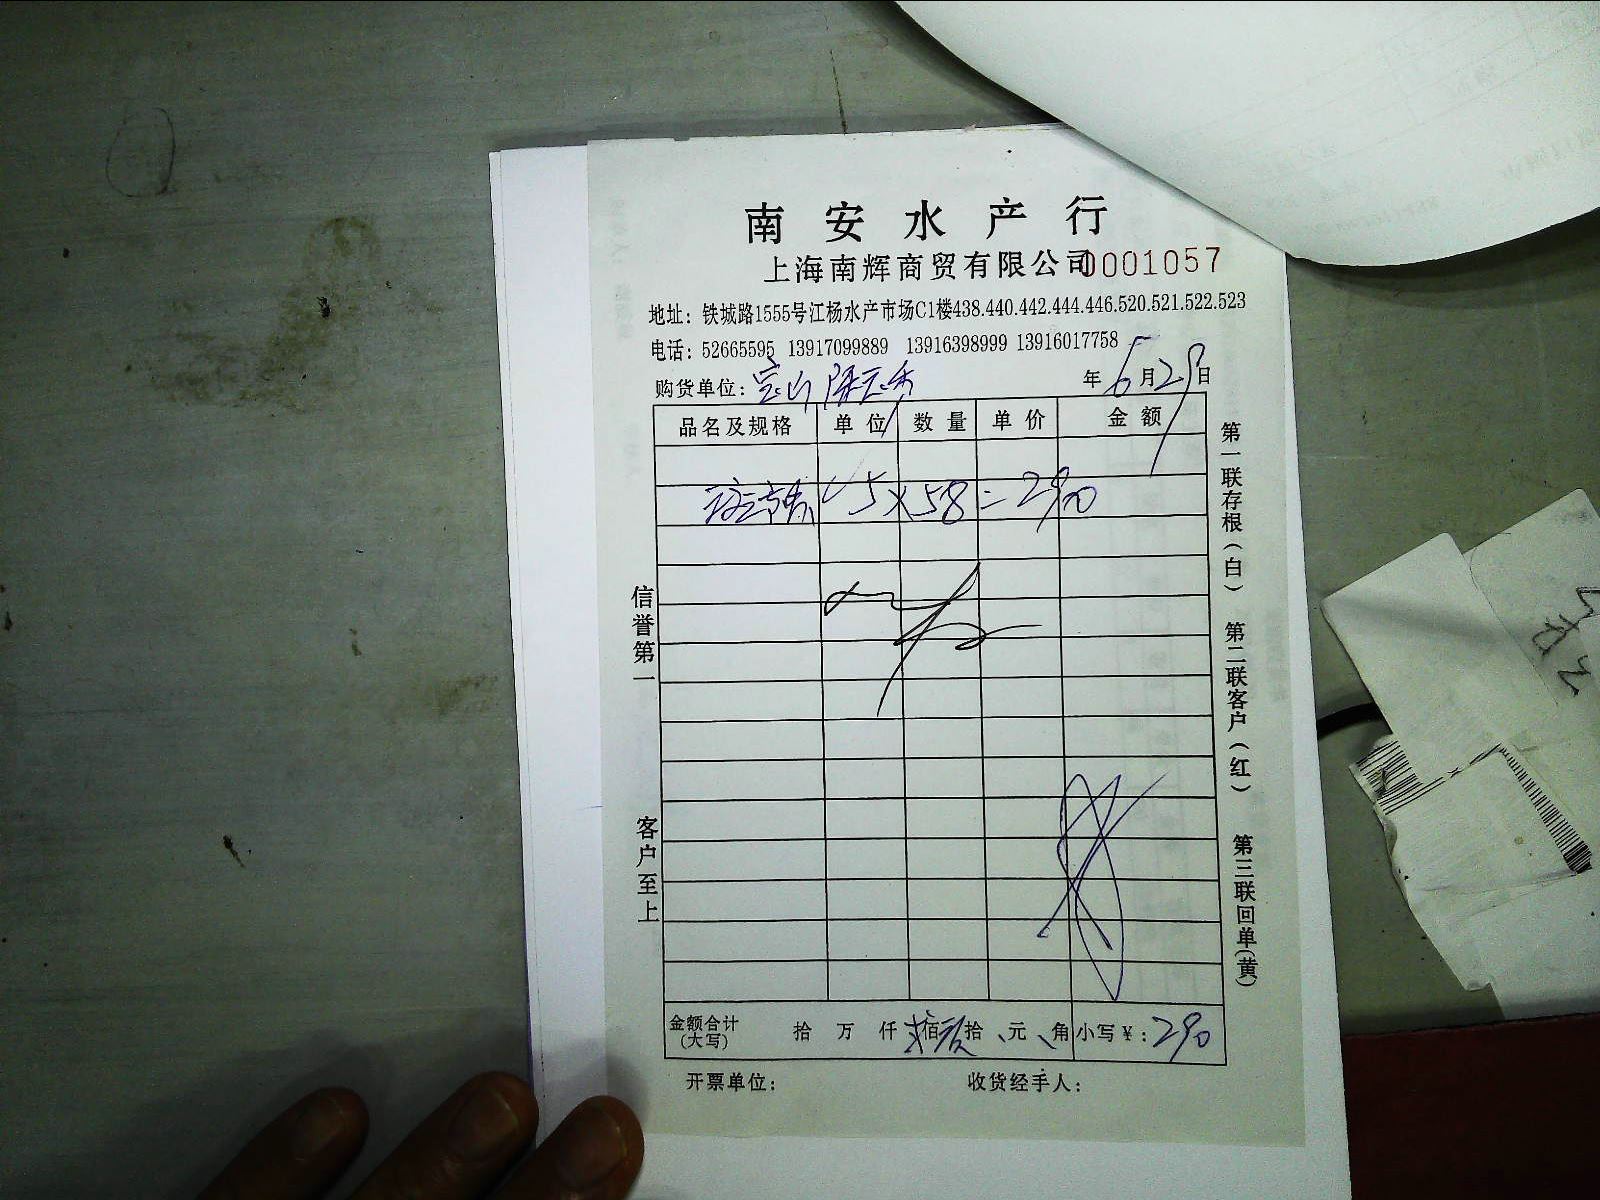 南安水产行
上海南辉商贸有限公司 0001057
地址：铁城路1555号江杨水产市场C1楼438.440.442.444.446.520.521.522.523
电话：52665595 13917099889 13916398999 13916017758
购货单位：宝山 年6月29日
品名及规格 单位 数量 单价 金额
5×58=290
金额合计(大写) 拾 万 仟 贰佰玖拾 元 角 小写¥：290
开票单位： 收货经手人：
信誉第一 客户至上
第一联存根(白) 第二联客户(红) 第三联回单(黄)